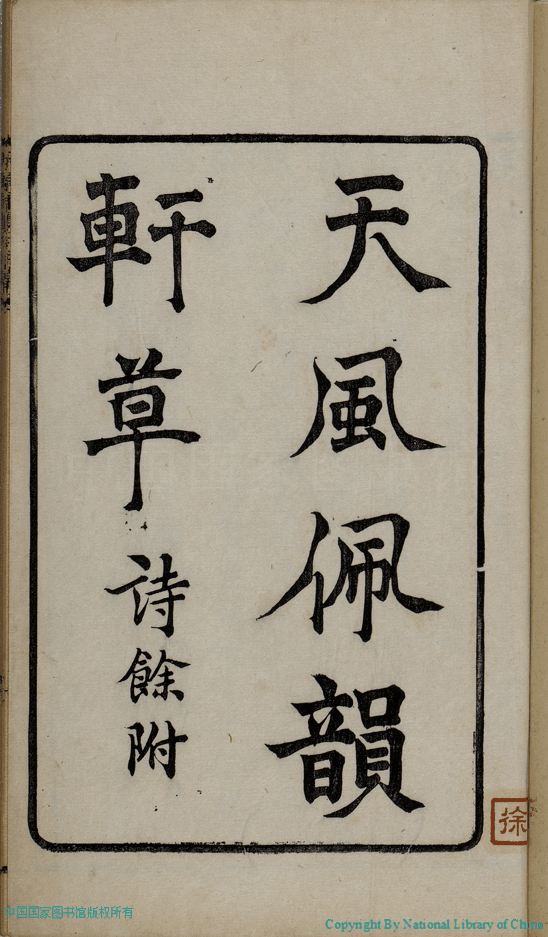 天風佩韻
軒草詩餘附
徐
中国国家图书馆版权所有
Copyright By National Library of China